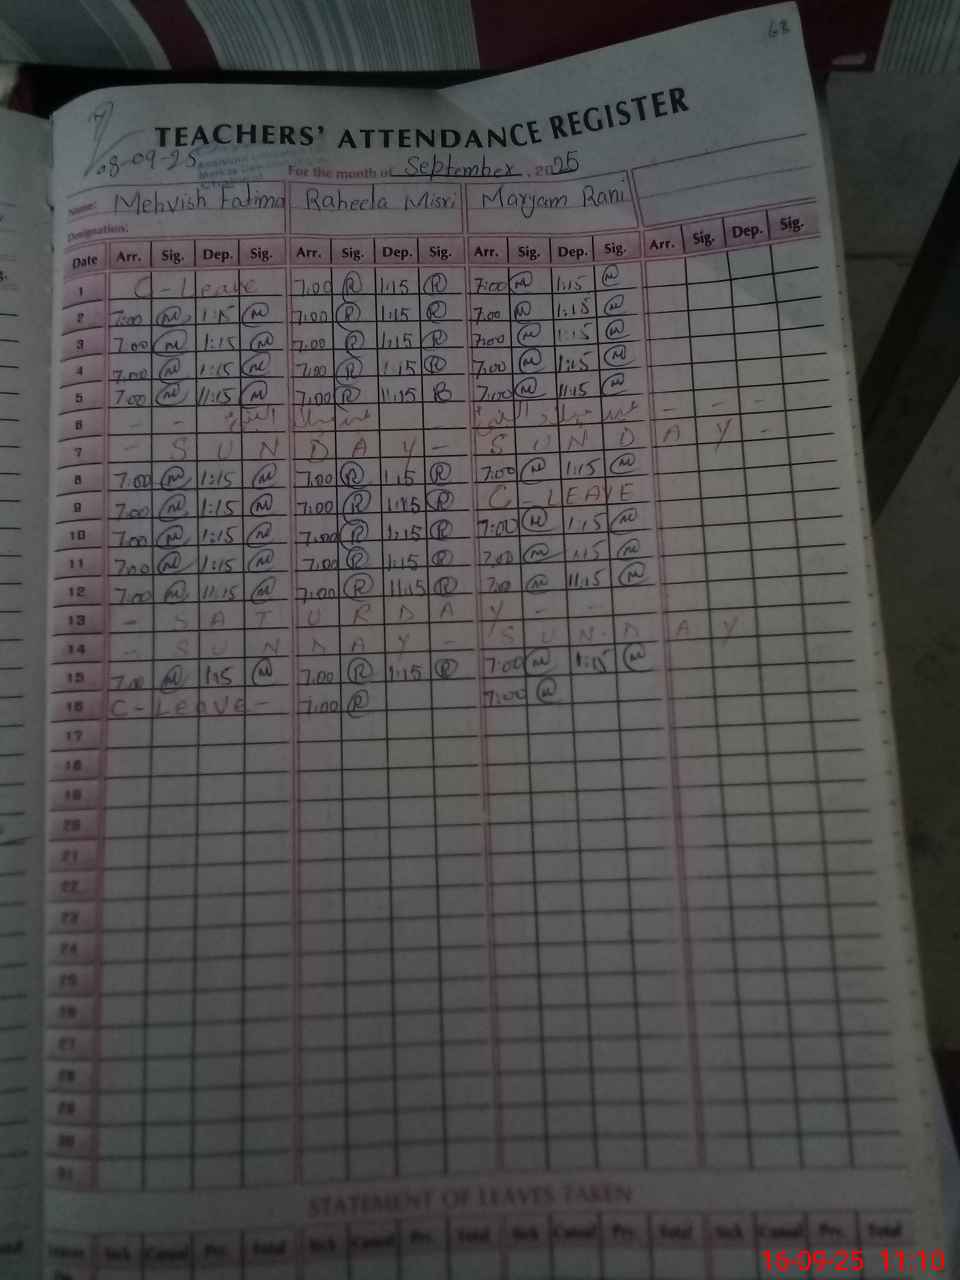 68
08-09-25
TEACHERS' ATTENDANCE REGISTER
For the month of September, 2025
Name: Mehvish Fatima Raheela Misri Maryam Rani
Designation:
Date Arr. Sig. Dep. Sig. Arr. Sig. Dep. Sig. Arr. Sig. Dep. Sig. Arr. Sig. Dep. Sig.
1 C-Leave 7:00 R 1:15 R 7:00 M 1:15 M
2 7:00 M 1:15 M 7:00 R 1:15 R 7:00 M 1:15 M
3 7:00 M 1:15 M 7:00 R 1:15 R 7:00 M 1:15 M
4 7:00 M 1:15 M 7:00 R 1:15 R 7:00 M 1:15 M
5 7:00 M 11:15 M 7:00 R 11:15 R 7:00 M 11:15 M
6 - - - - - -
7 - S U N D A Y - S U N D A Y -
8 7:00 M 1:15 M 7:00 R 1:15 R 7:00 M 1:15 M
9 7:00 M 1:15 M 7:00 R 1:15 R C-LEAVE
10 7:00 M 1:15 M 7:00 R 1:15 R 7:00 M 1:15 M
11 7:00 M 1:15 M 7:00 R 1:15 R 7:00 M 1:15 M
12 7:00 M 11:15 M 7:00 R 11:15 R 7:00 M 11:15 M
13 - S A T U R D A Y - -
14 - S U N D A Y - S U N D A Y
15 7:00 M 1:15 M 7:00 R 1:15 R 7:00 M 1:15 M
16 C-Leave- 7:00 R 7:00 M
17
18
19
20
21
22
23
24
25
26
27
28
29
30
31
STATEMENT OF LEAVES TAKEN
Leaves Sick Casual Prv. Total Sick Casual Prv. Total Sick Casual Prv. Total Sick Casual Prv. Total
16-09-25 11:10